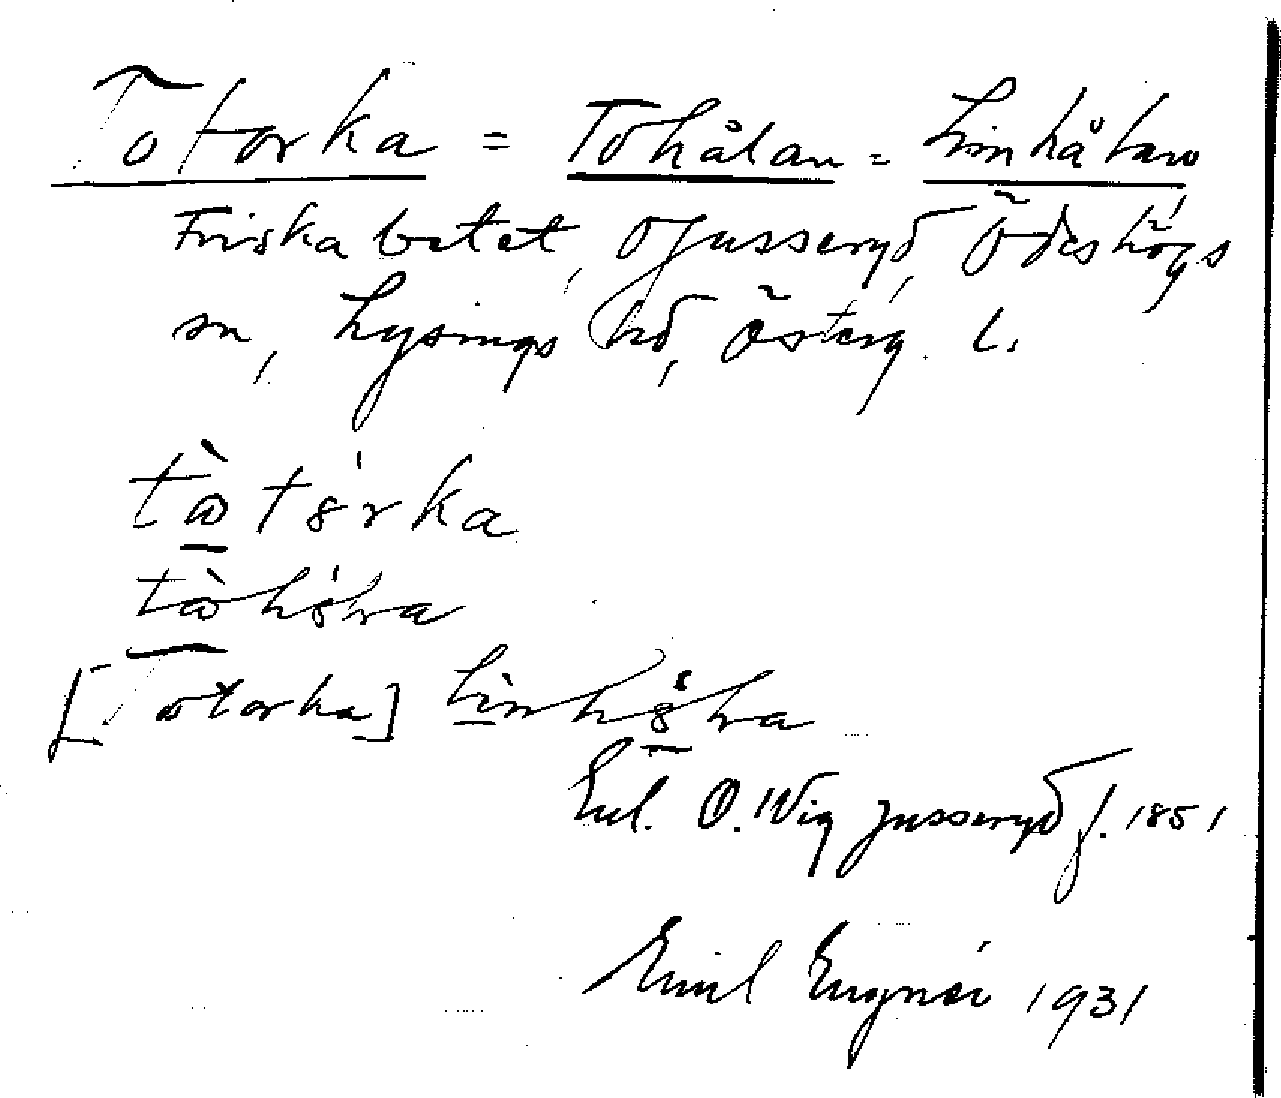 Totorka = Tohålan = Linhålan
Friskabetet, Ojusseryd, Ödeshögs
sn, Lysings hd, Österg. L.
tòtórka
tòhóla
[Totorka] Linhåla
Enl. O. Wig Jusseryd f. 1851
Emil Engnér 1931